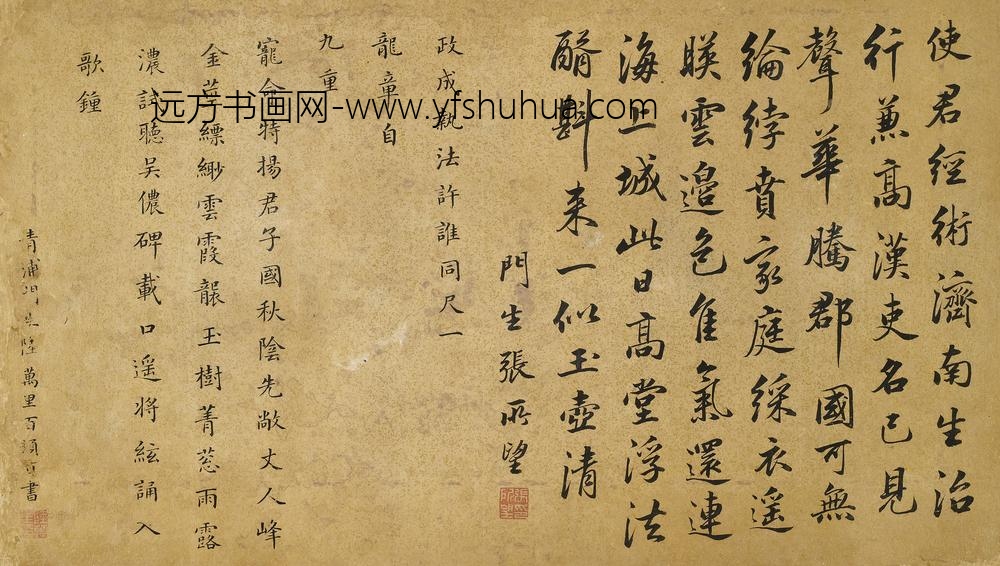 使君經術濟南生治
行兼高漢吏名已見
聲華騰郡國可無
綸綍賁家庭綵衣遥
暎雲邉色隹氣還連
海上城此日高堂浮法
醑斟来一似玉壺清
門生張所望
政成執法許誰同尺一
龍章自
九重
寵命特揚君子國秋陰先敞丈人峰
金莖縹緲雲霞襲玉樹菁葱雨露
濃試聽吳儂碑載口遥將絃誦入
歌鍾
青浦門生陸萬里百頓首書
远方书画网-www.yfshuhua.com